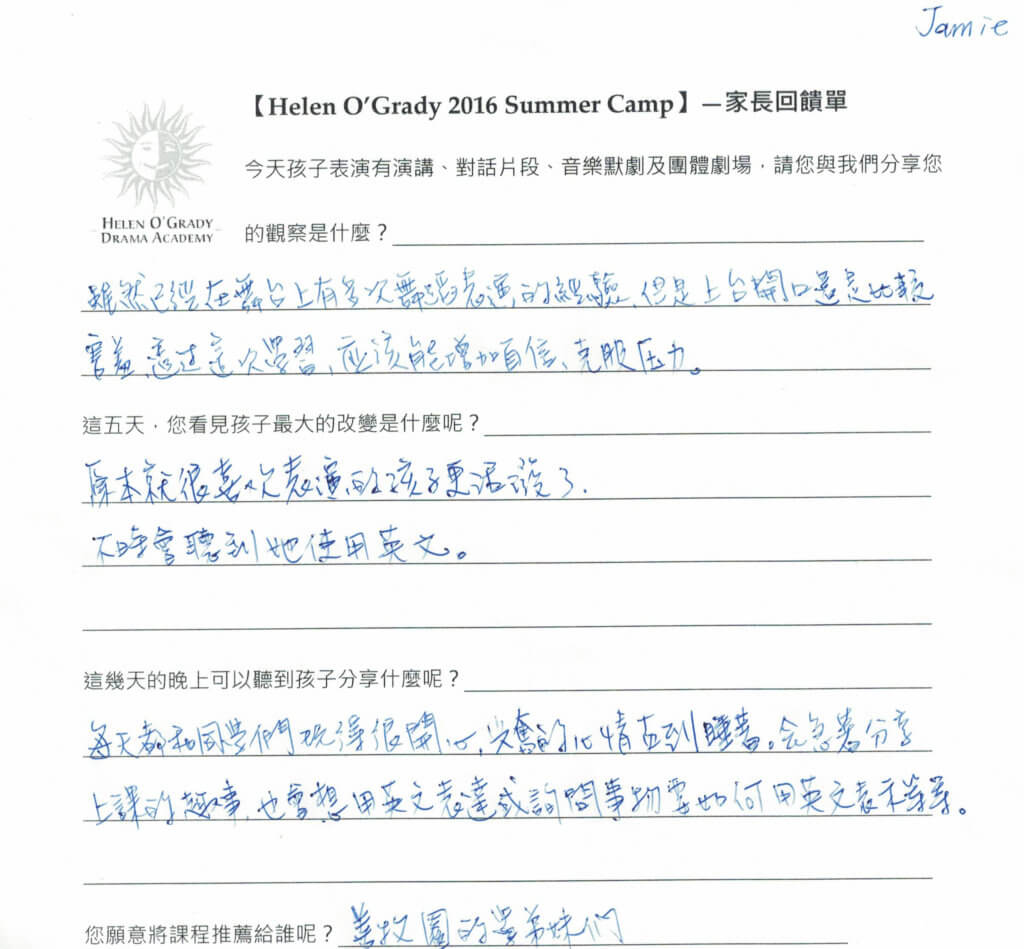 Jamie
【Helen O'Grady 2016 Summer Camp】—家長回饋單
HELEN O'GRADY
DRAMA ACADEMY
今天孩子表演有演講、對話片段、音樂默劇及團體劇場，請您與我們分享您
的觀察是什麼？
雖然已經在舞台上有多次舞蹈表演的經驗，但是上台開口還是比較
害羞，透過這次學習，應該能增加自信、克服压力。
這五天，您看見孩子最大的改變是什麼呢？
原本就很喜欢表演的孩子更活潑了，
不時會聽到她使用英文。
這幾天的晚上可以聽到孩子分享什麼呢？
每天都和同學們玩得很開心，興奮的心情直到睡著。会急著分享
上課的趣事，也會想用英文表達或詢問事物要如何用英文表示等等。
您願意將課程推薦給誰呢？ 的學弟妹們